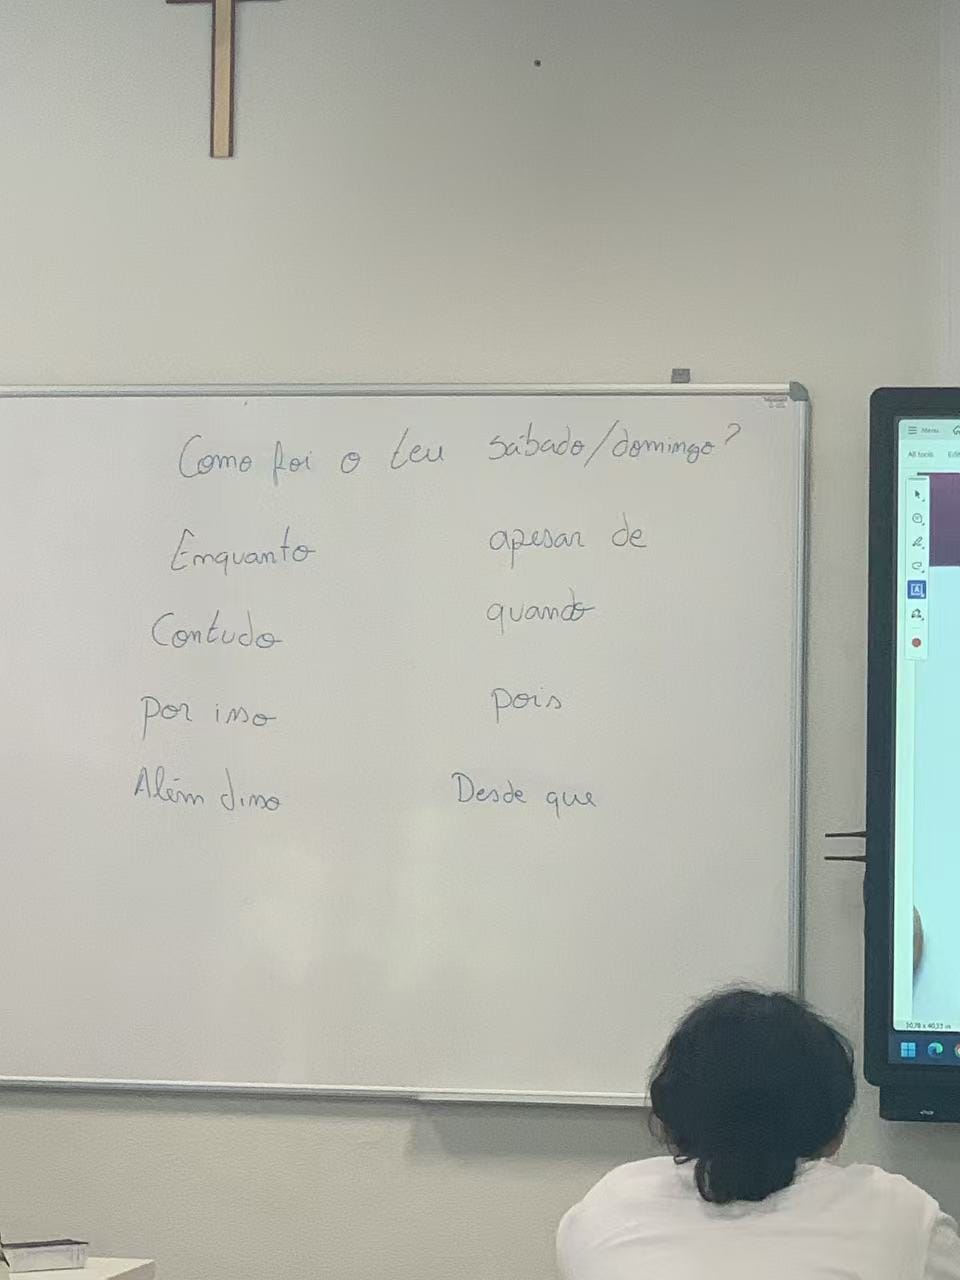 Como foi o teu sábado/domingo?
Enquanto apesar de
Contudo quando
por isso pois
Além disso Desde que
Menu
All tools Edit
30,78 x 40,33 cm